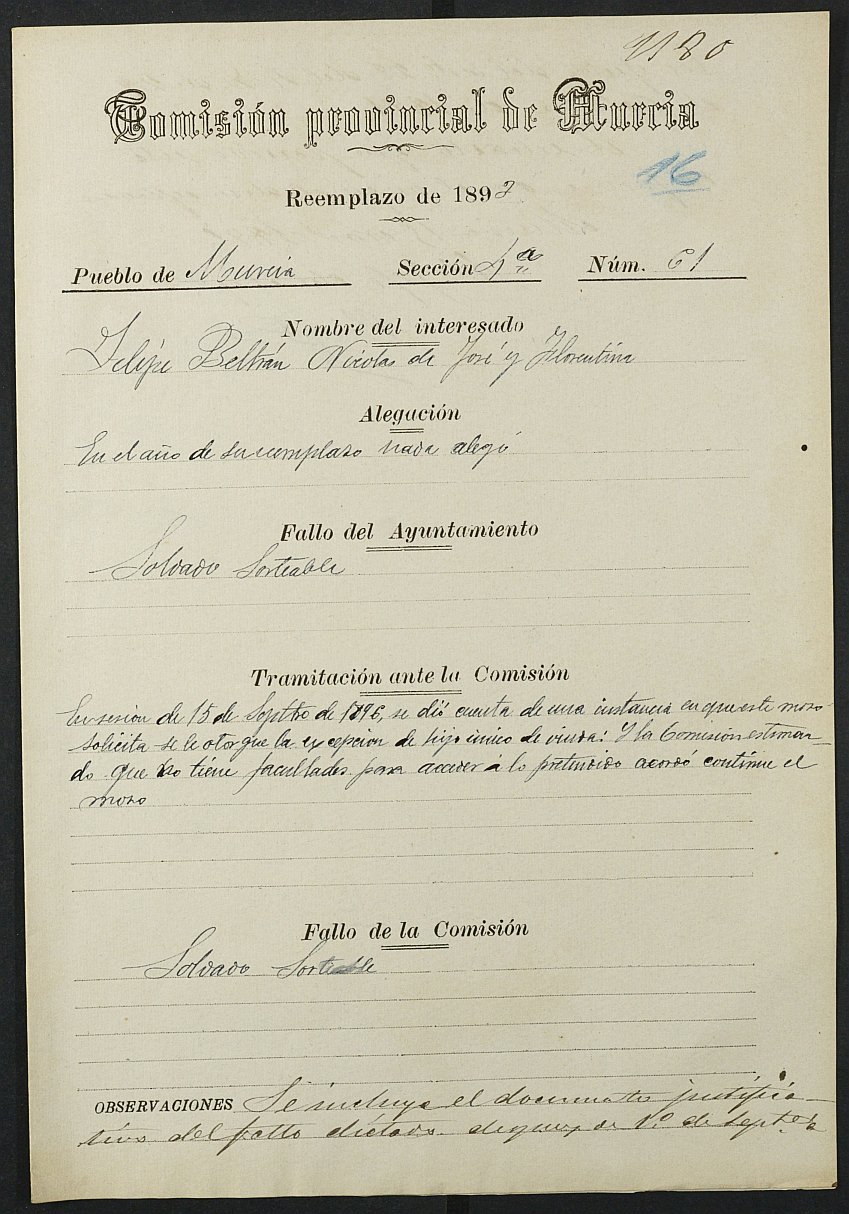 1180
Comisión provincial de Murcia
16
Reemplazo de 1892
Pueblo de Murcia Sección 4ª Núm. 61
Nombre del interesado
Felipe Beltrán Nicolas de José y Florentina
Alegación
En el año de su reemplazo nada alegó
Fallo del Ayuntamiento
Soldado Sorteable
Tramitación ante la Comisión
En sesion de 15 de Septbre de 1896, se dió cuenta de una instancia en que este mozo
solicita se le otorgue la excepcion de hijo unico de viuda: Y la Comisión estiman-
do que no tiene facultades para acceder á lo pretendido acordó continue el
mozo
Fallo de la Comisión
Soldado Sorteable
OBSERVACIONES Se incluye el documento justifica-
tivo del fallo dictado de 1º de Septe